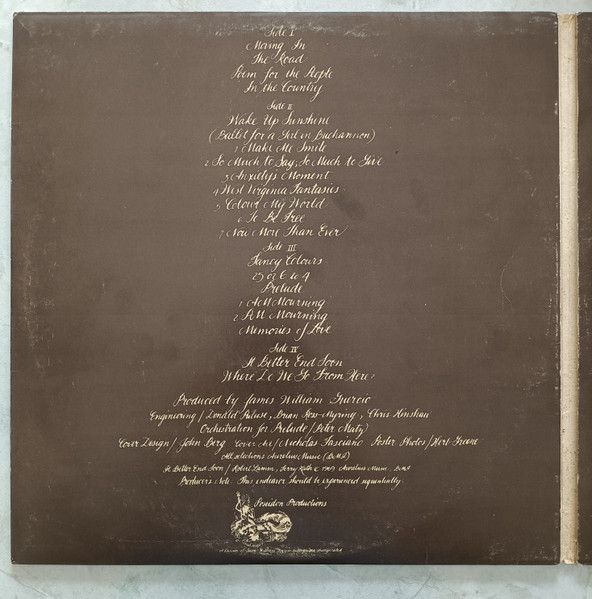 Side I
Moving In
The Road
Poem for the People
In the Country
Side II
Wake Up Sunshine
(Ballet for a Girl in Buchannon)
1 Make Me Smile
2 So Much to Say, So Much to Give
3 Anxiety's Moment
4 West Virginia Fantasies
5 Colour My World
6 To Be Free
7 Now More Than Ever
Side III
Fancy Colours
25 or 6 to 4
Prelude
1 AM Mourning
2 PM Mourning
Memories of Love
Side IV
It Better End Soon
Where Do We Go From Here?
Produced by James William Guercio
Engineering / Donald Puluse, Brian Ross-Myring, Chris Hinshaw
Orchestration for Prelude / Peter Matz
Cover Design / John Berg Cover Art / Nicholas Fasciano Poster Photos / Herb Greene
All selections Aurelius Music (BMI)
It Better End Soon / Robert Lamm, Terry Kath © 1969 Aurelius Music, BMI
Producers Note. This endeavor should be experienced sequentially.
Poseidon Productions